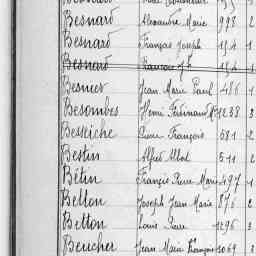 Besnard Alexandre Marie 998 2
Besnard François Joseph 154 1
Besnard François J 154 1
Besnier Jean Marie Paul 486 1
Besombes Henri Ferdinand M 1238 3
Besseiche Pierre François 681 2
Bestin Alfred Albert 511 2
Bétin François Pierre Marie 497 1
Betton Joseph Jean Marie 876 2
Betton Louis Pierre 1296 3
Beucher Jean Marie François 1069 3